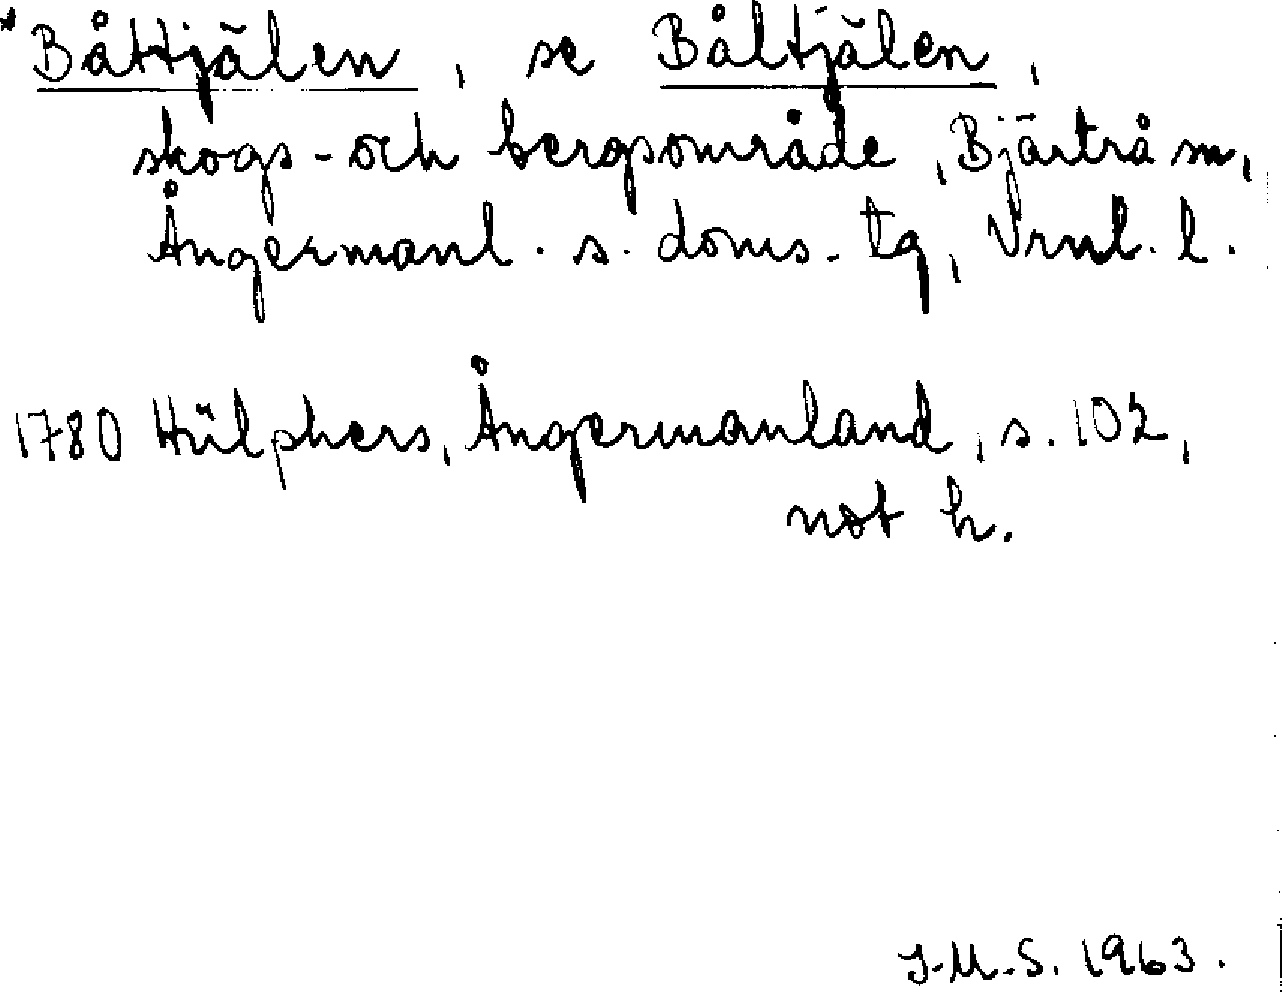 *Båttjälen, se Båltjälen,
skogs- och bergsområde, Bjärtrå sn,
Ångermanl. s. doms. tg, Vrnl. l.
1780 Hülphers, Ångermanland, s. 102,
not h.
J.M.S. 1963.